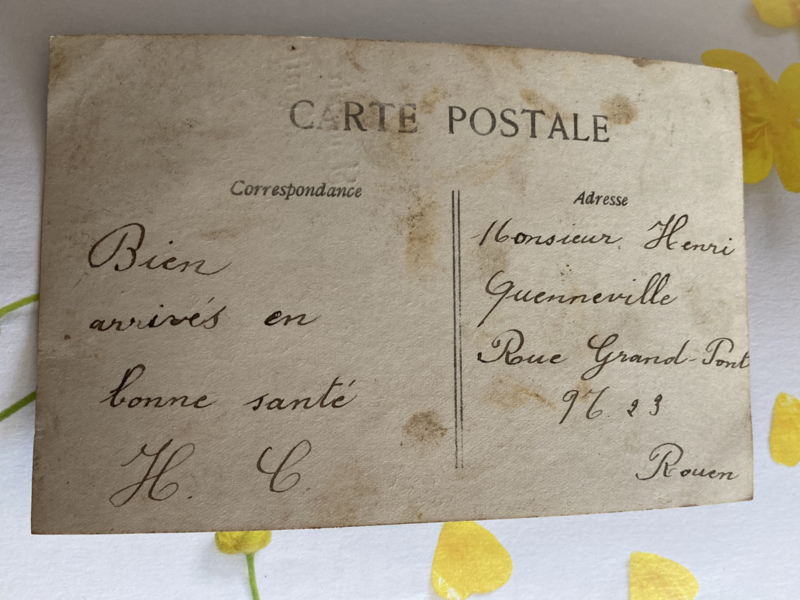 CARTE POSTALE
Correspondance
Bien
arrivés en
bonne santé
H. C.
Adresse
Monsieur Henri
Quenneville
Rue Grand-Pont
N. 23
Rouen